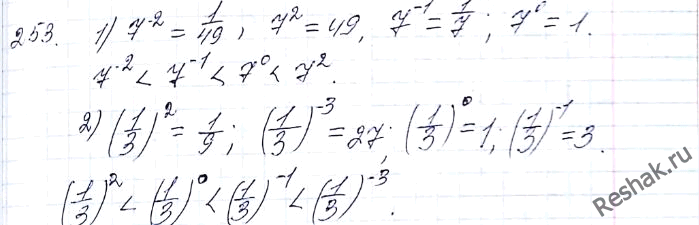 253. 1) 7^-2 = 1/49, 7^2 = 49, 7^-1 = 1/7; 7^0 = 1.
7^-2 < 7^-1 < 7^0 < 7^2.
2) (1/3)^2 = 1/9; (1/3)^-3 = 27; (1/3)^0 = 1; (1/3)^-1 = 3.
(1/3)^2 < (1/3)^0 < (1/3)^-1 < (1/3)^-3.
Reshak.ru